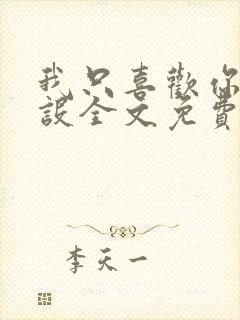 我只喜歡你
設全文免費
李天一